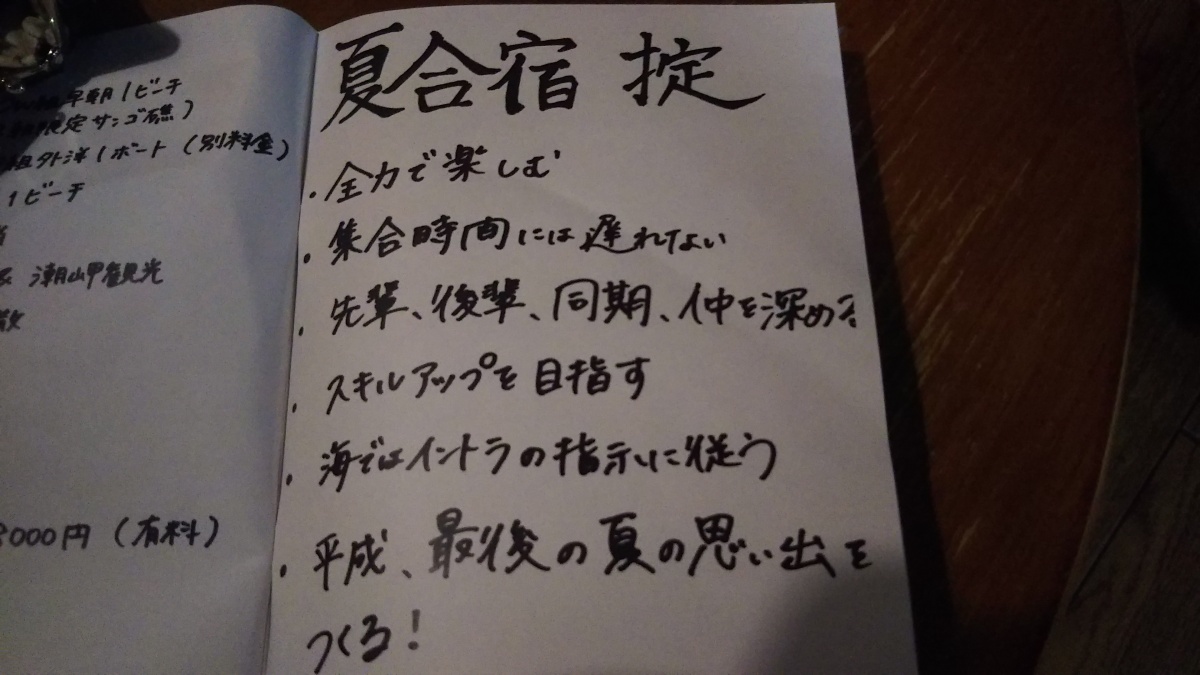 早朝1ビーチ
限定サンゴ礁)
外洋1ボート(別料金)
1ビーチ
潮岬観光
散
000円(有料)
夏合宿 掟
・全力で楽しむ
・集合時間には遅れてない
・先輩、後輩、同期、仲を深める
・スキルアップを目指す
・海ではイントラの指示に従う
・平成、最後の夏の思い出を
つくる!